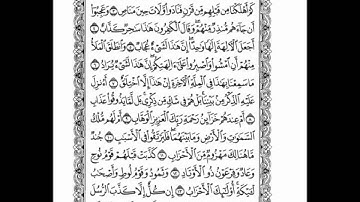 كَمْ أَهْلَكْنَا مِن قَبْلِهِم مِّن قَرْنٍ فَنَادَوا۟ وَّلَاتَ حِينَ مَنَاصٍ ٣ وَعَجِبُوٓا۟
أَن جَآءَهُم مُّنذِرٌ مِّنْهُمْ وَقَالَ ٱلْكَٰفِرُونَ هَٰذَا سَٰحِرٌ كَذَّابٌ ٤
أَجَعَلَ ٱلْءَالِهَةَ إِلَٰهًا وَٰحِدًا إِنَّ هَٰذَا لَشَىْءٌ عُجَابٌ ٥ وَٱنطَلَقَ ٱلْمَلَأُ
مِنْهُمْ أَنِ ٱمْشُوا۟ وَٱصْبِرُوا۟ عَلَىٰٓ ءَالِهَتِكُمْ إِنَّ هَٰذَا لَشَىْءٌ يُرَادُ ٦
مَا سَمِعْنَا بِهَٰذَا فِى ٱلْمِلَّةِ ٱلْءَاخِرَةِ إِنْ هَٰذَآ إِلَّا ٱخْتِلَٰقٌ ٧ أَءُنزِلَ
عَلَيْهِ ٱلذِّكْرُ مِنۢ بَيْنِنَا بَلْ هُمْ فِى شَكٍّ مِّن ذِكْرِى بَل لَّمَّا يَذُوقُوا۟ عَذَابِ
٨ أَمْ عِندَهُمْ خَزَآئِنُ رَحْمَةِ رَبِّكَ ٱلْعَزِيزِ ٱلْوَهَّابِ ٩ أَمْ لَهُم مُّلْكُ
ٱلسَّمَٰوَٰتِ وَٱلْأَرْضِ وَمَا بَيْنَهُمَا فَلْيَرْتَقُوا۟ فِى ٱلْأَسْبَٰبِ ١٠ جُندٌ
مَّا هُنَالِكَ مَهْزُومٌ مِّنَ ٱلْأَحْزَابِ ١١ كَذَّبَتْ قَبْلَهُمْ قَوْمُ نُوحٍ
وَعَادٌ وَفِرْعَوْنُ ذُو ٱلْأَوْتَادِ ١٢ وَثَمُودُ وَقَوْمُ لُوطٍ وَأَصْحَٰبُ
لْـَٔيْكَةِ أُو۟لَٰٓئِكَ ٱلْأَحْزَابُ ١٣ إِن كُلٌّ إِلَّا كَذَّبَ ٱلرُّسُلَ